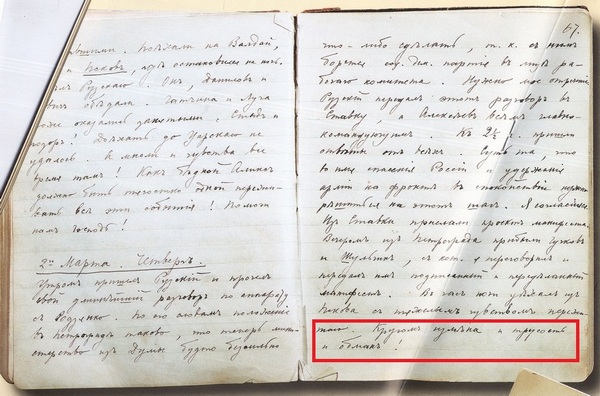 ятыми. Поѣхали на Валдай,
и Псковъ, гдѣ остановился на ночь.
ѣлъ Рузскаго. Онъ, Даниловъ и
вичъ обѣдали. Гатчина и Луга
тоже оказались занятыми! Стыдъ и
позоръ! Доѣхать до Царскаго не
удалось. А мысли и чувства все
время тамъ! Какъ бѣдной Аликсъ
должно быть тягостно одной пережи-
вать всѣ эти событія! Помоги
намъ Господь!
2го Марта. Четвергъ.
Утромъ пришелъ Рузскій и прочелъ
свой длиннѣйшій разговоръ по аппарату
съ Родзянко. По его словамъ положеніе
въ Петроградѣ таково, что теперь мини-
стерство изъ Думы будто безсильно
67.
что-либо сдѣлать, т. к. съ нимъ
борется соц.-дек. партія въ лицѣ ра-
бочаго комитета. Нужно мое отреченіе.
Рузскій передалъ этотъ разговоръ въ
Ставку, а Алексѣевъ всѣмъ главно-
командующимъ. Къ 2½ ч. пришли
отвѣты отъ всѣхъ. Суть та, что
во имя спасенія Россіи и удержанія
арміи на фронтѣ въ спокойствіи нужно
рѣшиться на этотъ шагъ. Я согласился.
Изъ Ставки прислали проектъ манифеста.
Вечеромъ изъ Петрограда прибыли Гучковъ
и Шульгинъ, съ кот. я переговорилъ и
передалъ имъ подписанный и передѣланный
манифестъ. Въ часъ ночи уѣхалъ изъ
Пскова съ тяжелымъ чувствомъ пережи-
таго. Кругомъ измѣна и трусость
и обманъ!